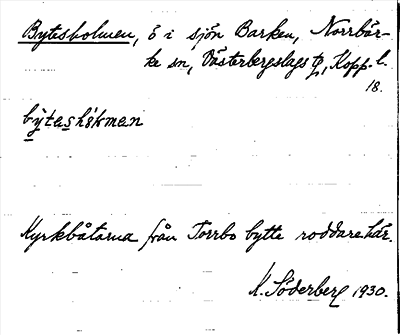 Bytesholmen, ö i sjön Barken, Norrbär-
ke sn, Västerbergslags tg, Kopp. l.
18.
by̆tashɷkman
Kyrkbåtarna från Torrbo bytte roddare här.
K. Söderberg 1930.